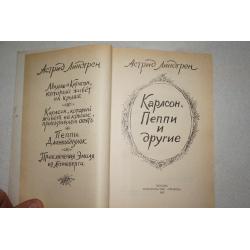 Астрид Линдгрен
Малыш и Карлсон,
который живёт
на крыше
Карлсон, который
живёт на крыше,
проказничает опять
Пеппи
Длинныйчулок
Приключения Эмиля
из Лённеберги
Астрид Линдгрен
Карлсон,
Пеппи и
другие